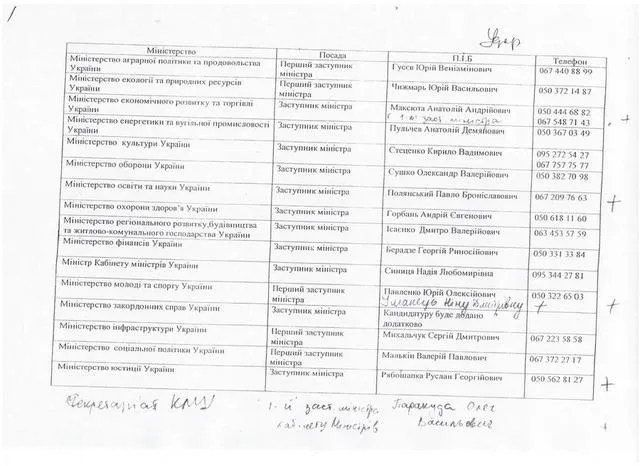 Удар
Міністерство Посада П.І.Б Телефон
Міністерство аграрної політики та продовольства України Перший заступник міністра Гусєв Юрій Веніамінович 067 440 88 99
Міністерство екології та природних ресурсів України Перший заступник міністра Чижмарь Юрій Васильович 050 372 14 87
Міністерство економічного розвитку та торгівлі України Заступник міністра Максюта Анатолій Андрійович 050 444 68 82
є 1-й заст міністра 067 548 71 43
Міністерство енергетики та вугільної промисловості України Заступник міністра Пульчев Анатолій Демянович 050 367 03 49
Міністерство культури України Заступник міністра Стеценко Кирило Вадимович 095 272 54 27
067 757 75 77
Міністерство оборони України Заступник міністра Сушко Олександр Валерійович 050 382 70 98
Міністерство освіти та науки України Заступник міністра Полянський Павло Броніславович 067 209 76 63
Міністерство охорони здоров'я України Заступник міністра Горбань Андрій Євгенович 050 618 11 60
Міністерство регіонального розвитку,будівництва та житлово-комунального господарства України Заступник міністра Ісаєнко Дмитро Валерійович 063 453 57 59
Міністерство фінансів України Заступник міністра Берадзе Георгій Риносійович 050 331 33 84
Міністр Кабінету міністрів України Заступник міністра Синиця Надія Любомирівна 095 344 27 81
Міністерство молоді та спорту України Перший заступник міністра Павленко Юрій Олексійович 050 322 65 03
Уманець Нену Дмитрівну
Міністерство закордонних справ України Заступник міністра Кандидатуру буде додано додатково
Міністерство інфраструктури України Перший заступник міністра Михальчук Сергій Дмитрович 067 223 58 58
Міністерство соціальної політики України Перший заступник міністра Малькін Валерій Павлович 067 372 27 17
Міністерство юстиції України Заступник міністра Рябошапка Руслан Георгійович 050 562 81 27
Секретаріат КМУ 1-й заст міністра Паракуда Олег
каб-нету Міністрів Васильович